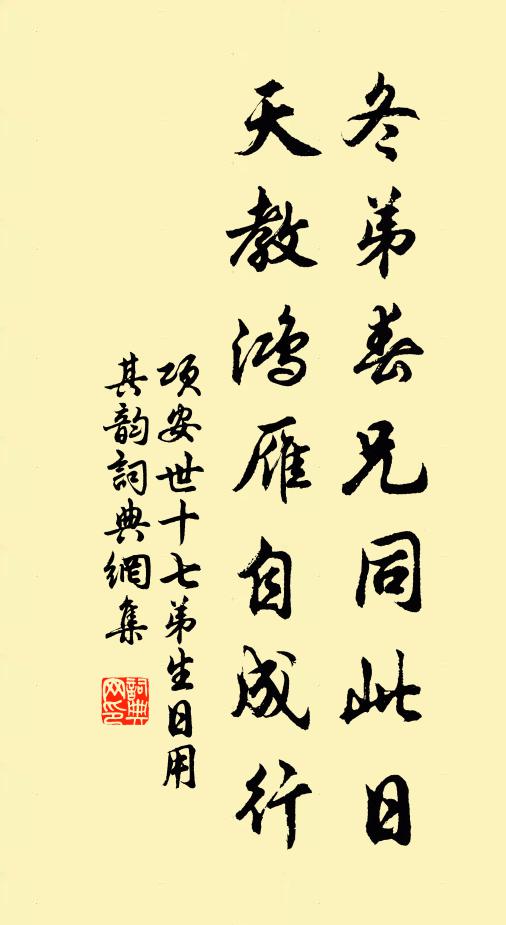 冬弟春兄同此日
天教鴻雁自成行
項安世十七弟生日用
其韵詞典網集
詞典网印